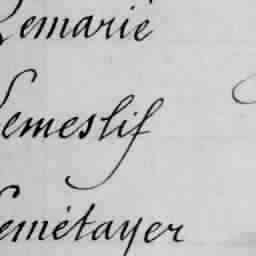 Lemarié
Lemeslif
Lemétayer